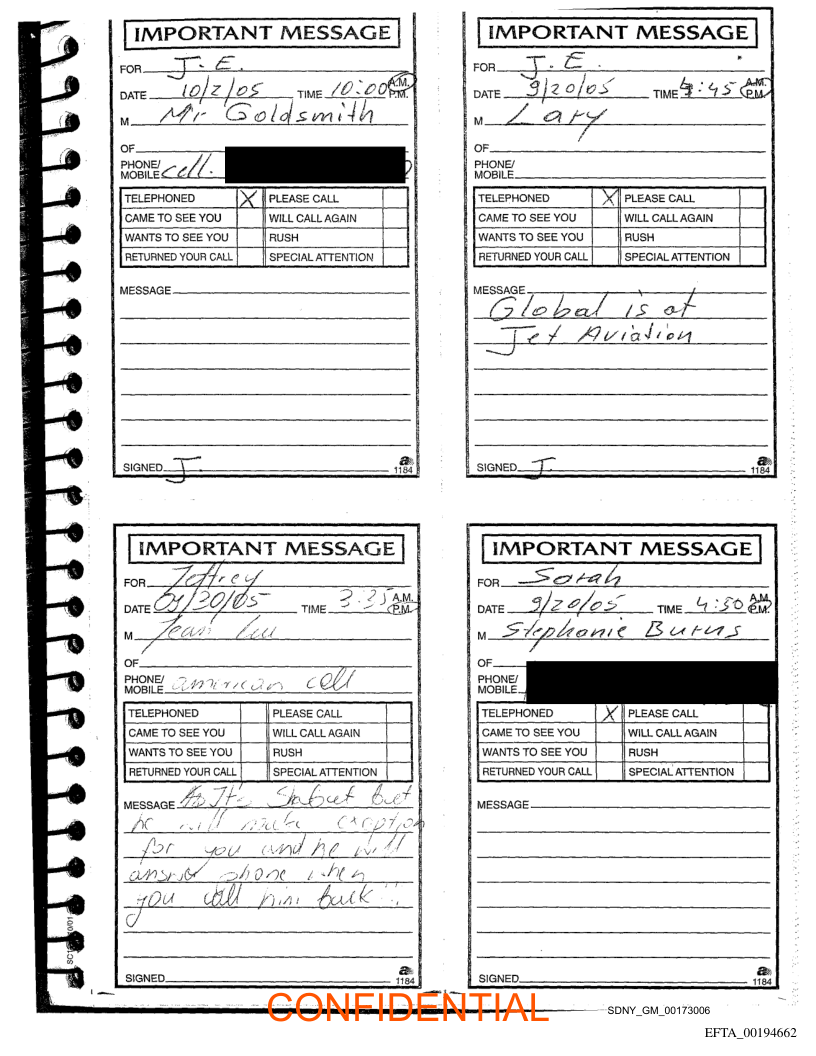 IMPORTANT MESSAGE
FOR J.E.
DATE 10/2/05 TIME 10:00 A.M. P.M.
M Mr Goldsmith
OF
PHONE/
MOBILE cell.
TELEPHONED X PLEASE CALL
CAME TO SEE YOU WILL CALL AGAIN
WANTS TO SEE YOU RUSH
RETURNED YOUR CALL SPECIAL ATTENTION
MESSAGE
SIGNED J.
a
1184
IMPORTANT MESSAGE
FOR J.E.
DATE 9/20/05 TIME 4:45 A.M. P.M.
M Lary
OF
PHONE/
MOBILE
TELEPHONED X PLEASE CALL
CAME TO SEE YOU WILL CALL AGAIN
WANTS TO SEE YOU RUSH
RETURNED YOUR CALL SPECIAL ATTENTION
MESSAGE
Global is at
Jet Aviation
SIGNED J.
a
1184
IMPORTANT MESSAGE
FOR Jeffrey
DATE 09/30/05 TIME 3:35 A.M. P.M.
M Jean Luc
OF
PHONE/
MOBILE american cell
TELEPHONED PLEASE CALL
CAME TO SEE YOU WILL CALL AGAIN
WANTS TO SEE YOU RUSH
RETURNED YOUR CALL SPECIAL ATTENTION
MESSAGE It's Shabuet but
he will make exeption
for you and he will
answer phone when
you call him back
SIGNED
a
1184
IMPORTANT MESSAGE
FOR Sarah
DATE 9/20/05 TIME 4:50 A.M. P.M.
M Stephanie Burns
OF
PHONE/
MOBILE
TELEPHONED X PLEASE CALL
CAME TO SEE YOU WILL CALL AGAIN
WANTS TO SEE YOU RUSH
RETURNED YOUR CALL SPECIAL ATTENTION
MESSAGE
SIGNED
a
1184
CONFIDENTIAL
SDNY_GM_00173006
EFTA_00194662